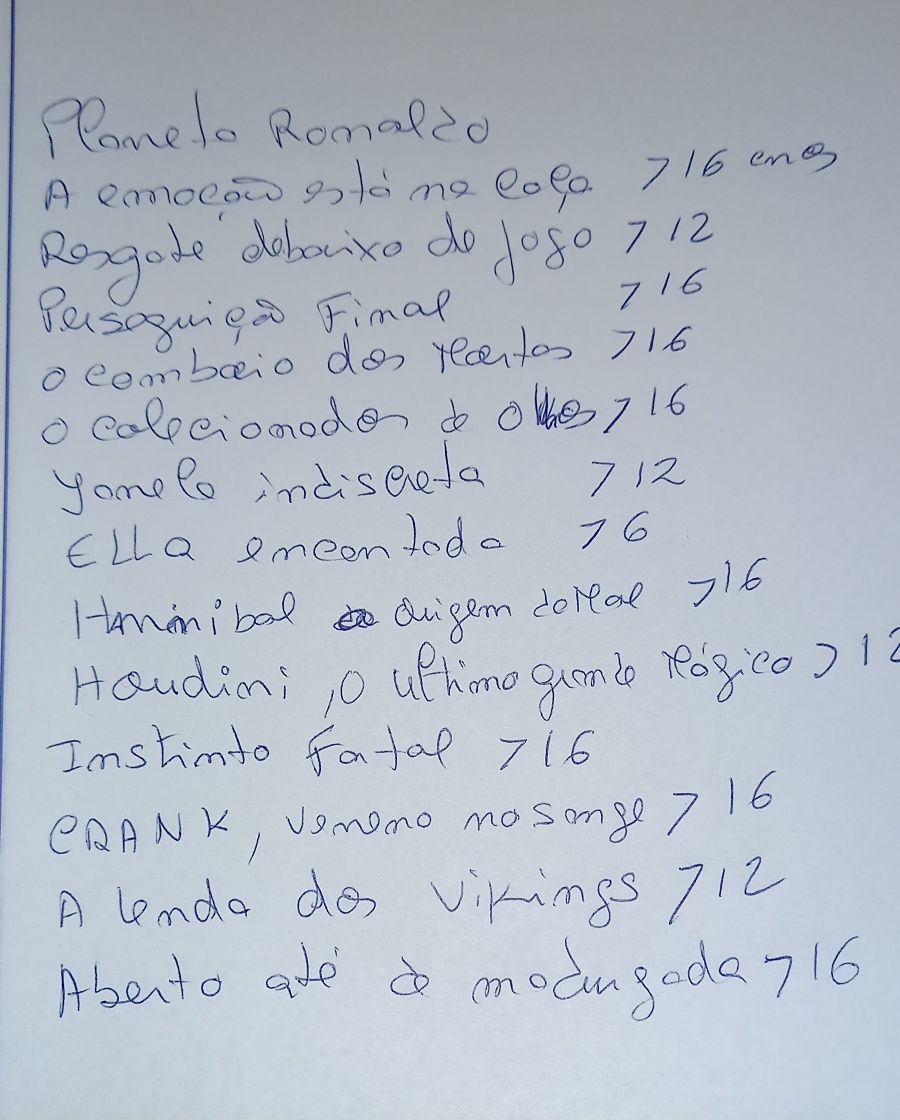 Planeta Ronaldo
A emoção está na caça >16 anos
Resgate debaixo de fogo >12
Perseguição Final >16
O comboio dos Mortos >16
O colecionador de Olhos >16
Janela indiscreta >12
Ella encantada >6
Hannibal origem do Mal >16
Houdini, O ultimo grande Mágico >12
Instinto Fatal >16
CRANK, veneno no sangue >16
A lenda dos Vikings >12
Aberto até de madrugada >16